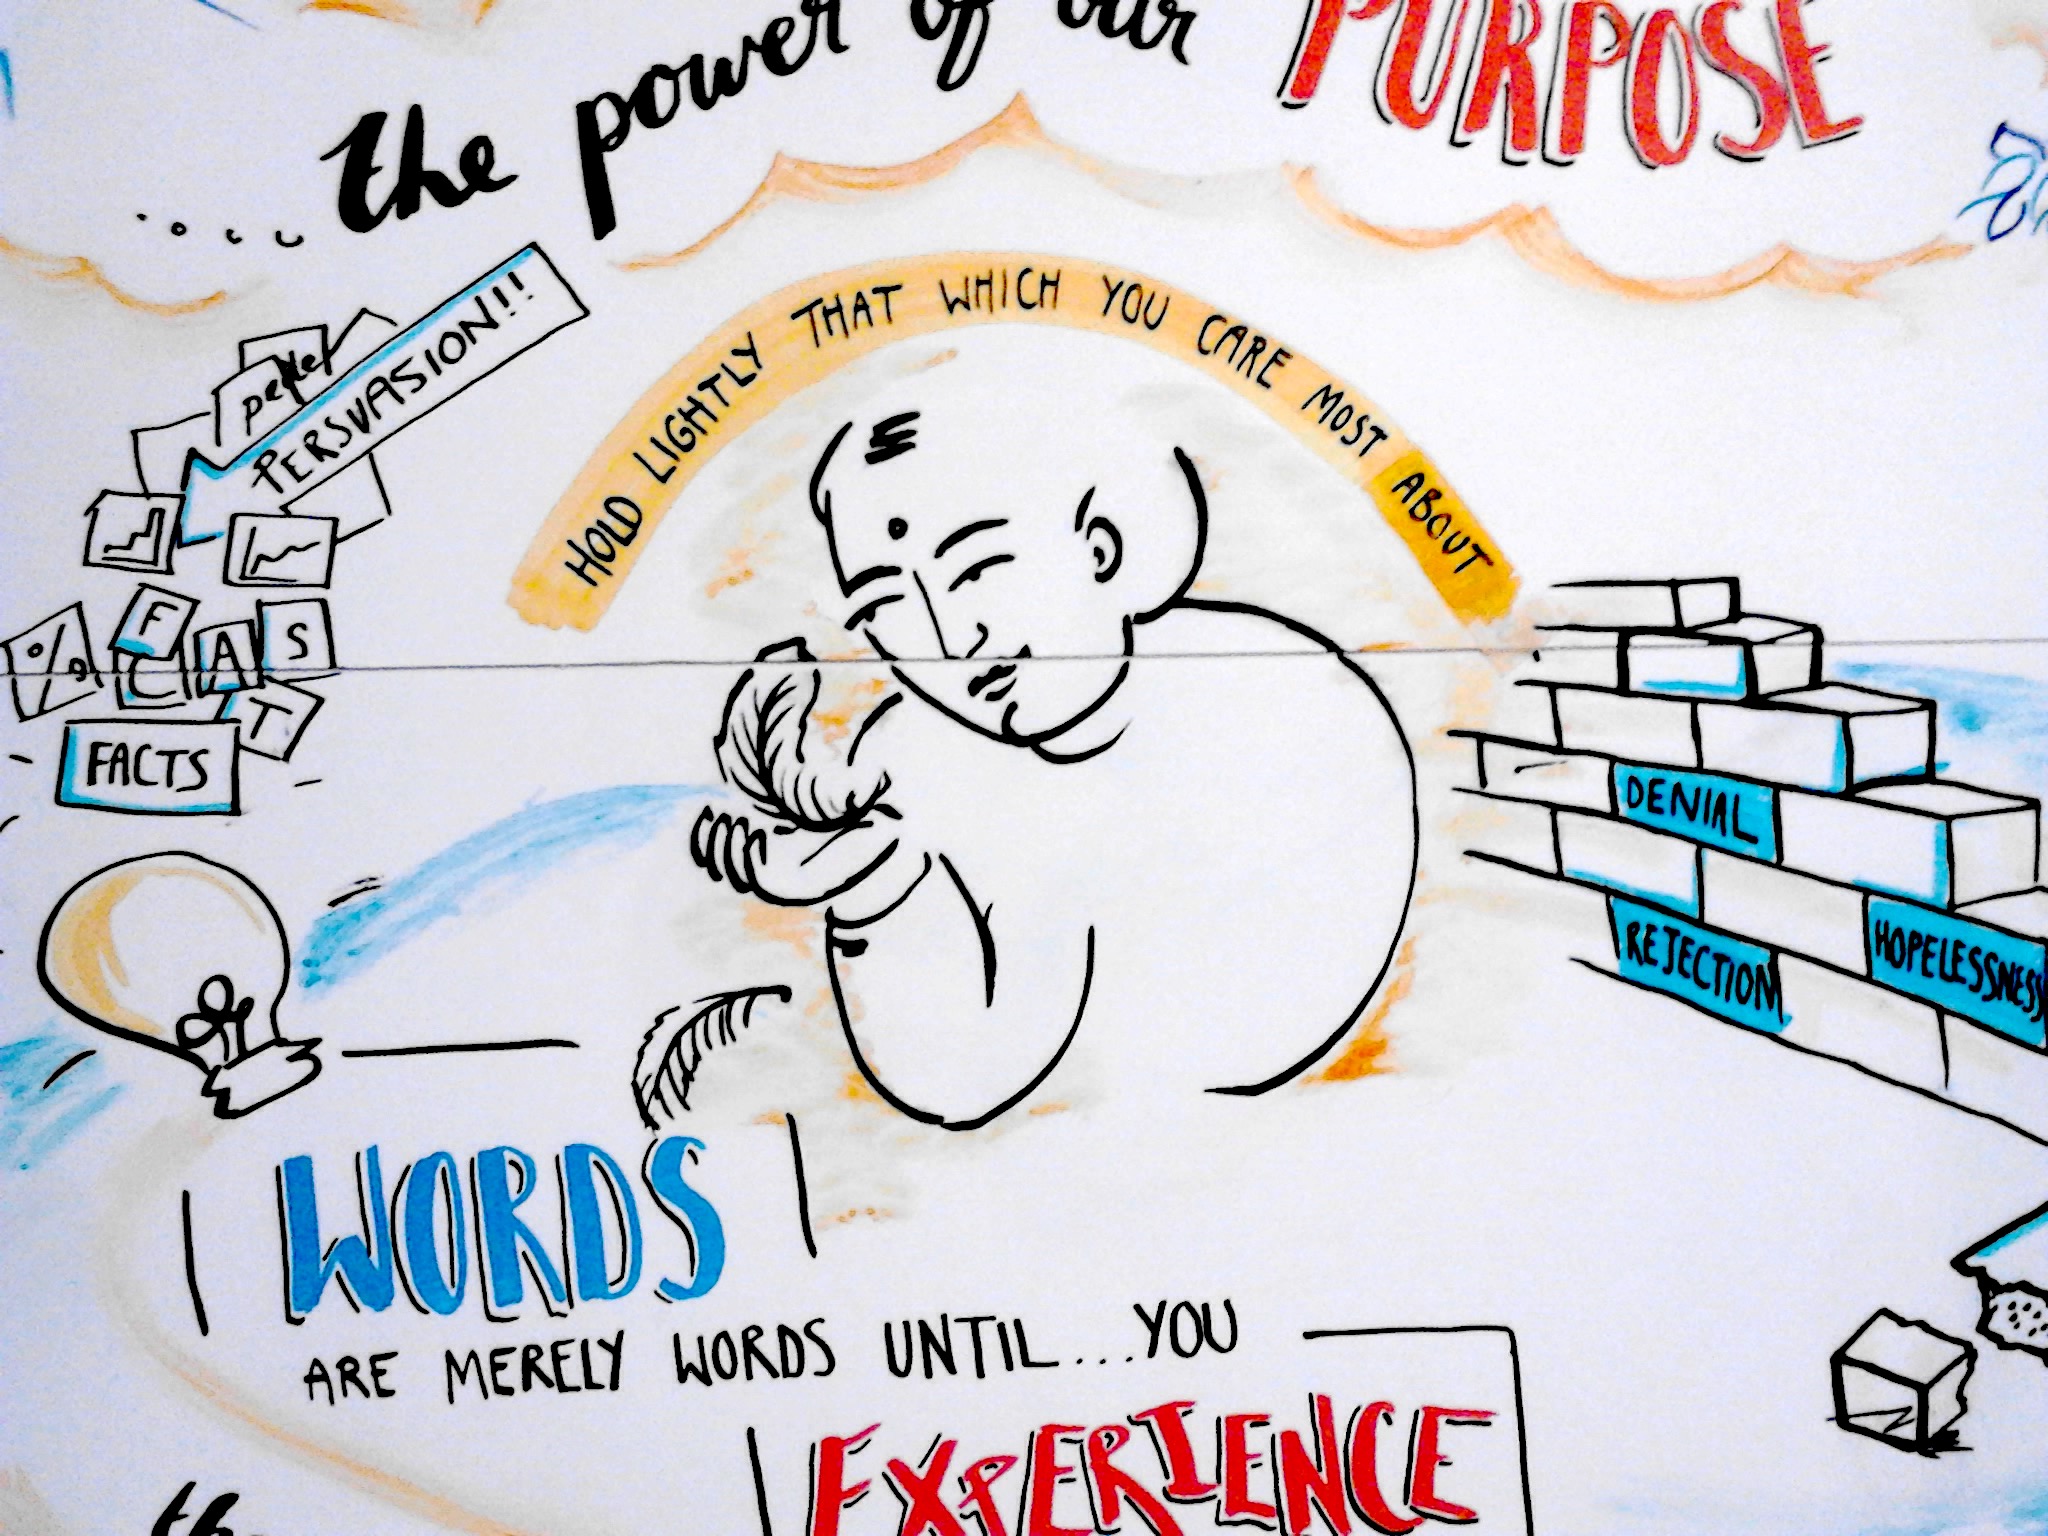 ....the power of our PURPOSE
PERSUASION!!
HOLD LIGHTLY THAT WHICH YOU CARE MOST ABOUT
%
F
C A S
T
FACTS
DENIAL
REJECTION
HOPELESSNESS
WORDS
ARE MERELY WORDS UNTIL...YOU
EXPERIENCE